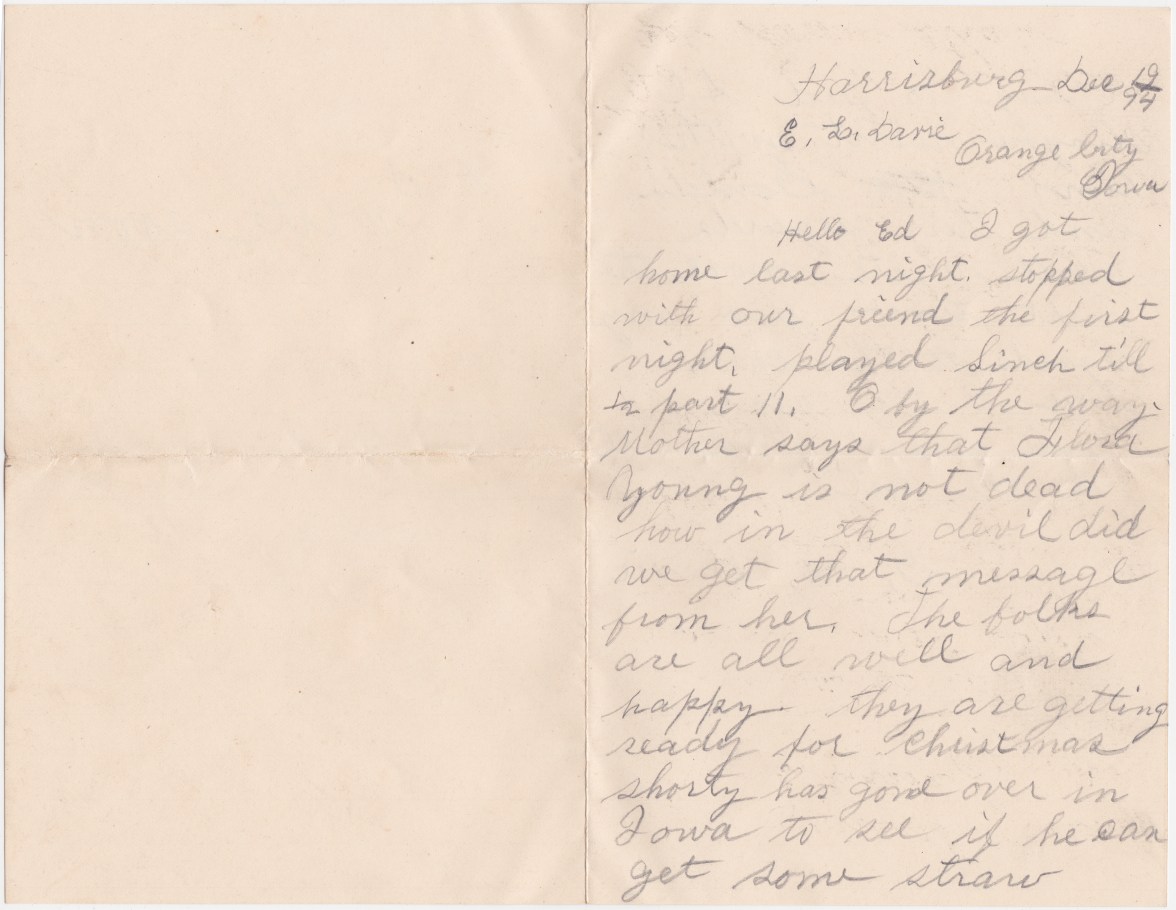 Harrisburg Dec 19/94
E. L. Davie
Orange City
Iowa
Hello Ed I got
home last night. stopped
with our friend the first
night. played Sinch till
1/2 part 11. O by the way.
Mother says that Flora
Young is not dead
how in the devil did
we get that message
from her. The folks
are all well and
happy. they are getting
ready for Christmas
shorty has gone over in
Iowa to see if he can
get some straw